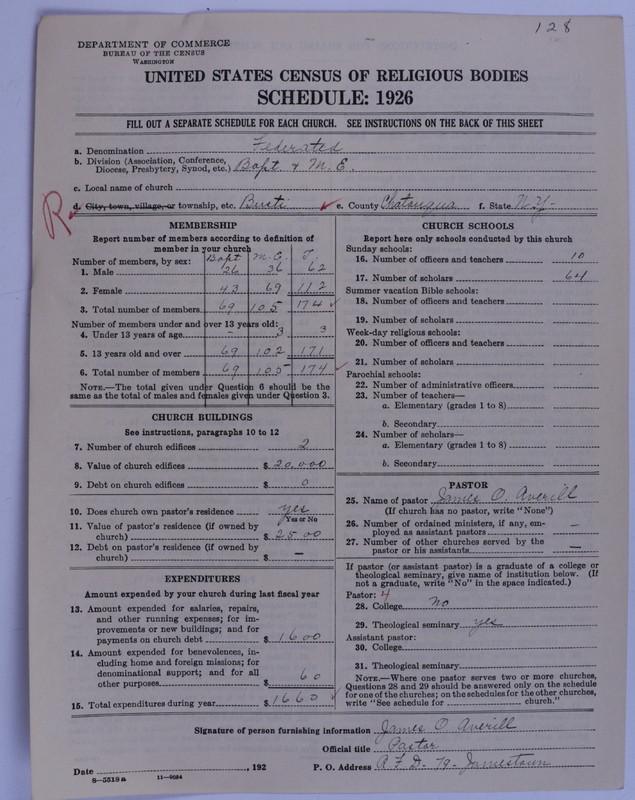 128
DEPARTMENT OF COMMERCE
BUREAU OF THE CENSUS
WASHINGTON
UNITED STATES CENSUS OF RELIGIOUS BODIES
SCHEDULE: 1926
FILL OUT A SEPARATE SCHEDULE FOR EACH CHURCH. SEE INSTRUCTIONS ON THE BACK OF THIS SHEET
a. Denomination Federated
b. Division (Association, Conference, Diocese, Presbytery, Synod, etc.) Bapt & M.E.
c. Local name of church
R d. City, town, village, or township, etc. Busti e. County Chatauqua f. State N.Y.
MEMBERSHIP
Report number of members according to definition of
member in your church
Number of members, by sex: Bapt M.E. T.
1. Male 26 36 62
2. Female 43 69 112
3. Total number of members 69 105 174
Number of members under and over 13 years old:
4. Under 13 years of age - 3 3
5. 13 years old and over 69 102 171
6. Total number of members 69 105 174
NOTE.—The total given under Question 6 should be the
same as the total of males and females given under Question 3.
CHURCH BUILDINGS
See instructions, paragraphs 10 to 12
7. Number of church edifices 2
8. Value of church edifices $ 20,000
9. Debt on church edifices $ 0
10. Does church own pastor's residence yes
Yes or No
11. Value of pastor's residence (if owned by
church) $ 2500
12. Debt on pastor's residence (if owned by
church) $ —
EXPENDITURES
Amount expended by your church during last fiscal year
13. Amount expended for salaries, repairs,
and other running expenses; for im-
provements or new buildings; and for
payments on church debt $ 1600
14. Amount expended for benevolences, in-
cluding home and foreign missions; for
denominational support; and for all
other purposes $ 60
15. Total expenditures during year $ 1660
CHURCH SCHOOLS
Report here only schools conducted by this church
Sunday schools:
16. Number of officers and teachers 10
17. Number of scholars 64
Summer vacation Bible schools:
18. Number of officers and teachers
19. Number of scholars
Week-day religious schools:
20. Number of officers and teachers
21. Number of scholars
Parochial schools:
22. Number of administrative officers
23. Number of teachers—
a. Elementary (grades 1 to 8)
b. Secondary
24. Number of scholars—
a. Elementary (grades 1 to 8)
b. Secondary
PASTOR
25. Name of pastor James O. Averill
(If church has no pastor, write "None")
26. Number of ordained ministers, if any, em-
ployed as assistant pastors —
27. Number of other churches served by the
pastor or his assistants —
If pastor (or assistant pastor) is a graduate of a college or
theological seminary, give name of institution below. (If
not a graduate, write "No" in the space indicated.)
Pastor: 4
28. College No
29. Theological seminary yes
Assistant pastor:
30. College
31. Theological seminary
NOTE.—Where one pastor serves two or more churches,
Questions 28 and 29 should be answered only on the schedule
for one of the churches; on the schedules for the other churches,
write "See schedule for church."
Signature of person furnishing information James O Averill
Official title Pastor
Date , 192 P. O. Address R.F.D. 79 - Jamestown
8-5518a 11-9024